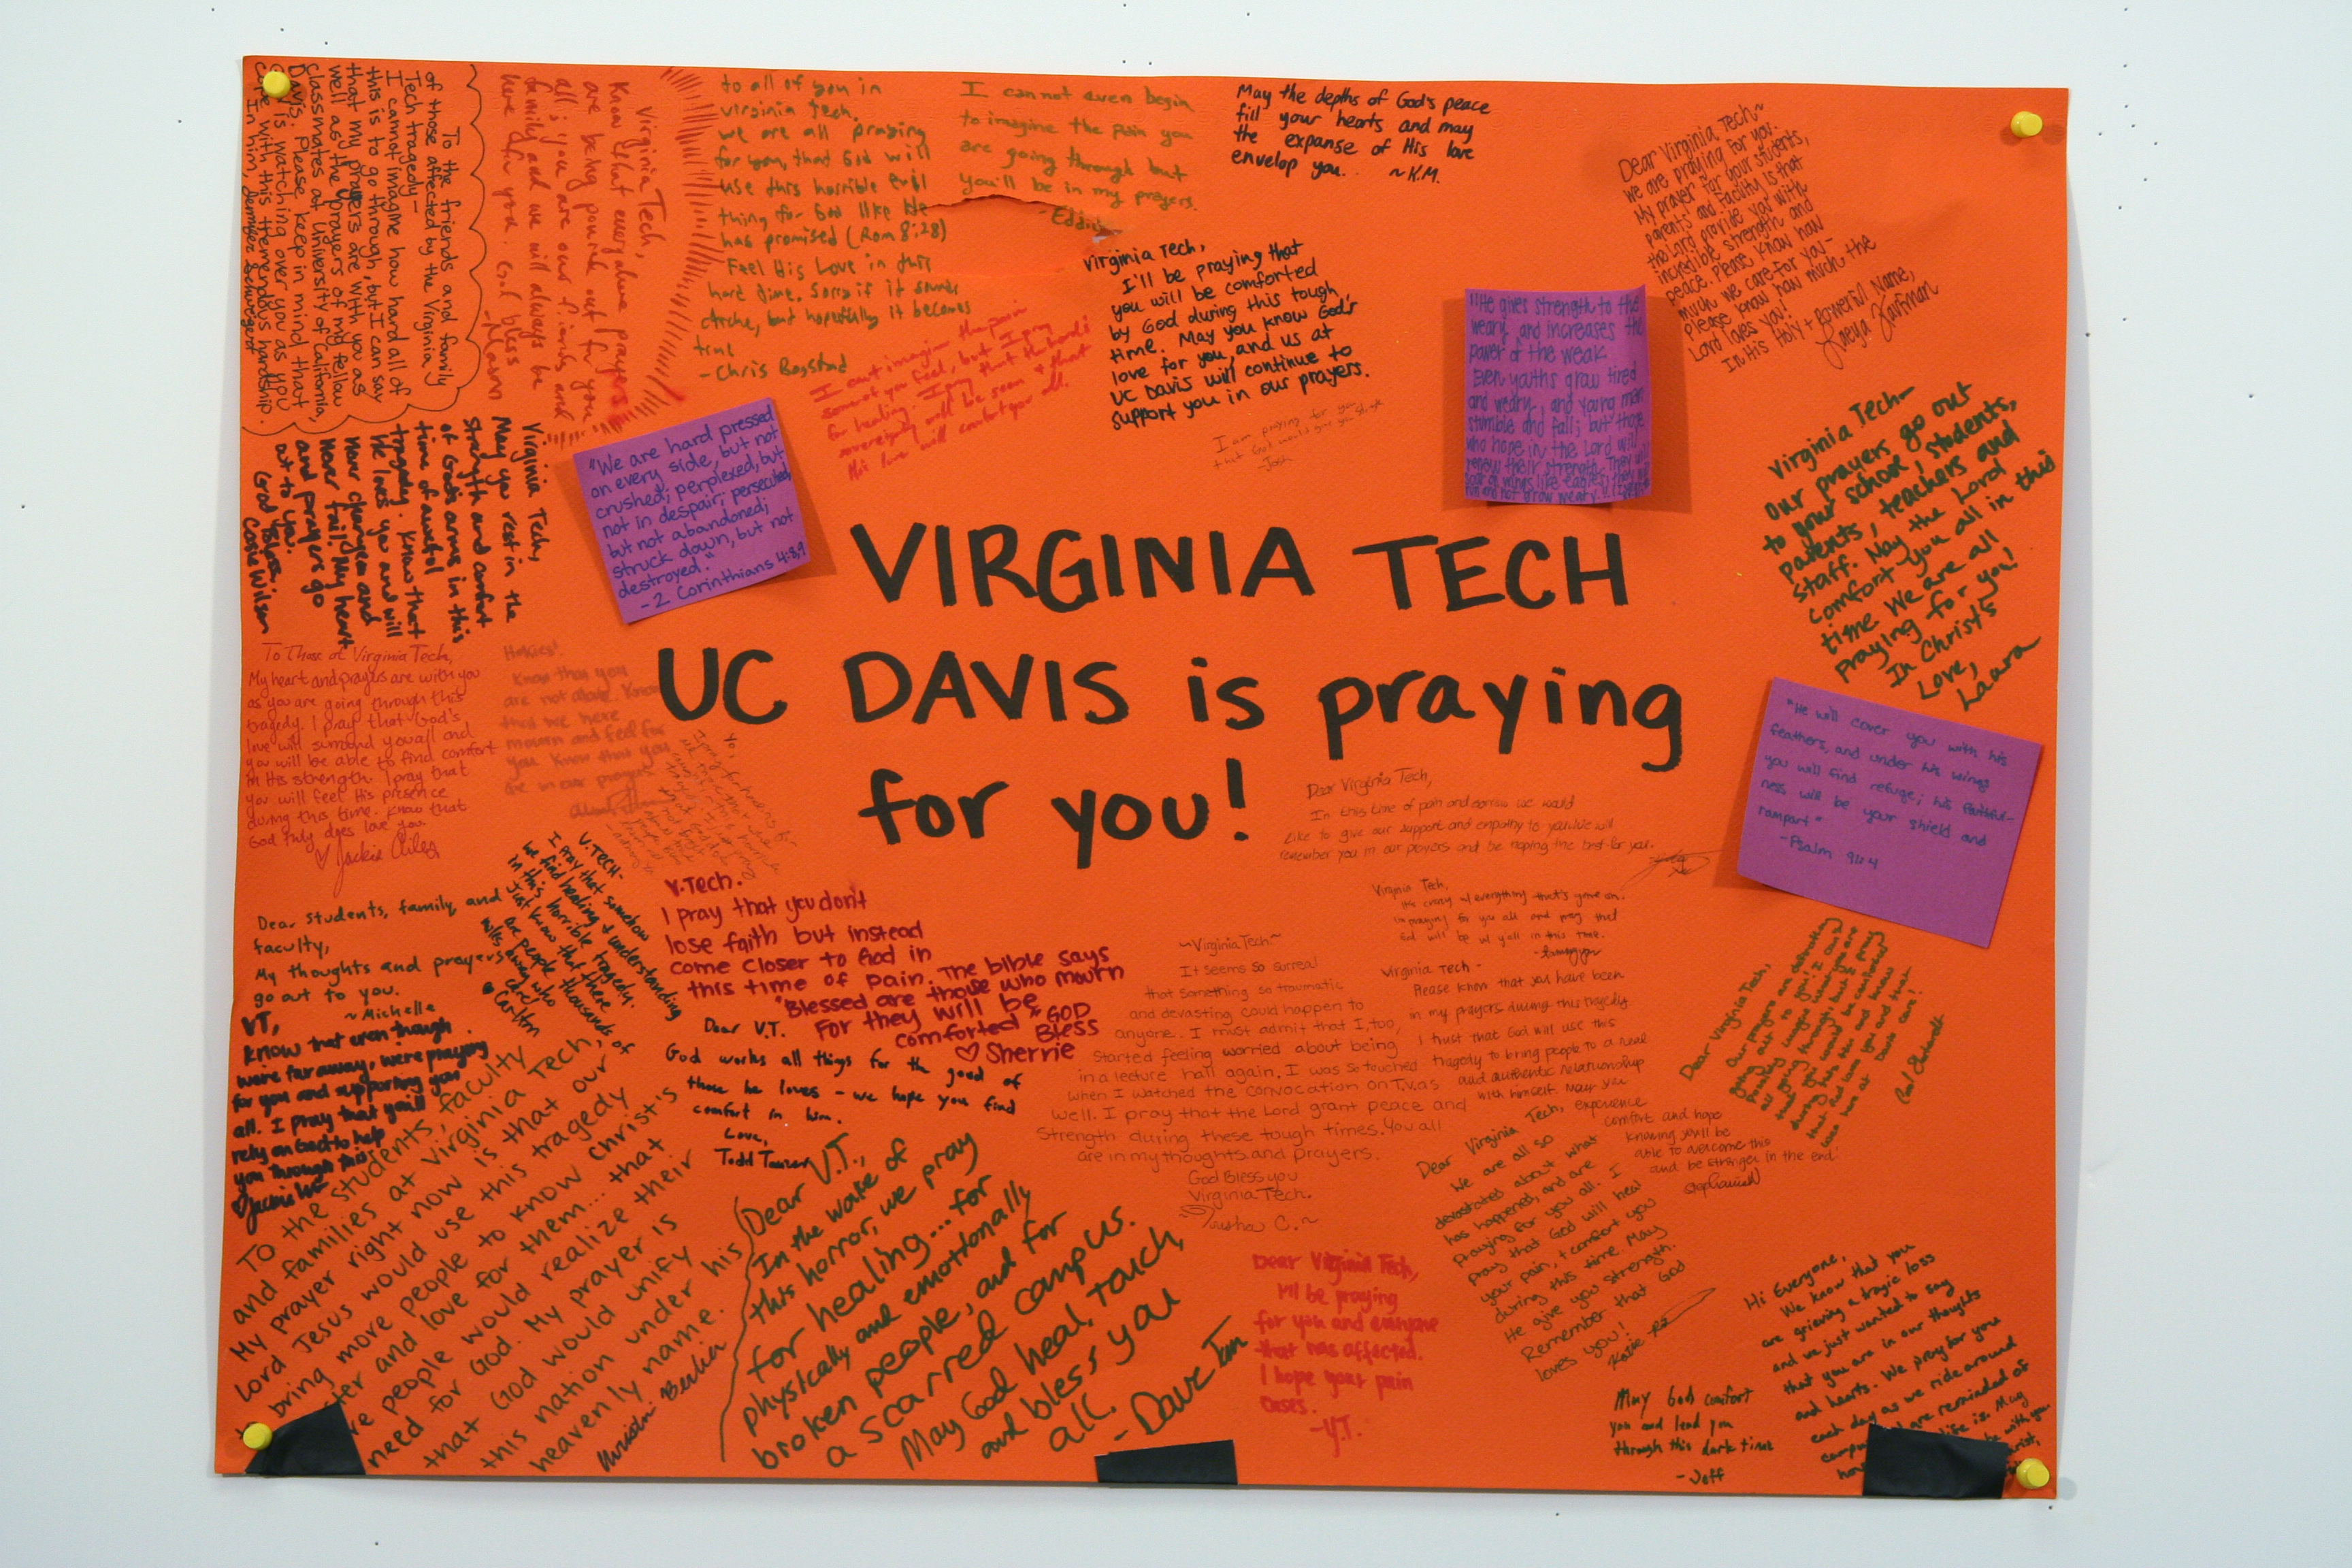 VIRGINIA TECH
UC DAVIS is praying
for you!
To the friends and family
of those affected by the Virginia
Tech tragedy—
I cannot imagine how hard all of
this is to go through, but I can say
that my prayers are with you as
well as the prayers of my fellow
classmates at University of California,
Davis. Please keep in mind that
is watching over you as you
cope with this tremendous hardship.
In him,
Virginia Tech,
Know that everyone prayers
are being pouring out for you
all; you are our friends and
family and we will always be
here for you. God bless
to all of you in
virginia tech.
we are all praying
for you, that God will
use this horrible evil
thing for God like He
has promised (Rom 8:28)
Feel His Love in this
hard time. Sorry if it sounds
cliche, but hopefully it becomes
true
-Chris
I cannot even begin
to imagine the pain you
are going through but
you'll be in my prayers.
May the depths of God's peace
fill your hearts and may
the expanse of His love
envelop you. ~K.M.
Virginia Tech,
I'll be praying that
you will be comforted
by God during this tough
time. May you know God's
love for you, and us at
UC Davis will continue to
support you in our prayers.
I can't imagine the pain
some of you feel, but I pray
for healing. I pray that the Lord's
sovereignty will be seen & that
His love will comfort you all.
I am praying for you
that God would give you
-Josh
Dear Virginia Tech~
We are praying for you.
My prayer for your students,
parents and faculty is that
the Lord provide you with
incredible strength and
peace. Please know how
much we care for you-
Please know how much the
Lord loves you!
In His Holy + Powerful Name,
"He gives strength to the
weary and increases the
power of the weak
Even youths grow tired
and weary, and young men
stumble and fall; but those
who hope in the Lord will
renew their strength. They will
soar on wings like eagles; they will
run and not grow weary
"We are hard pressed
on every side, but not
crushed; perplexed, but
not in despair; persecuted,
but not abandoned;
struck down, but not
destroyed."
-2 Corinthians 4:8,9
Virginia Tech-
Our prayers go out
to your school, students,
parents, teachers and
staff. May the Lord
comfort you all in this
time. We are all
praying for you!
In Christ's
Love,
Laura
Virginia Tech,
May you rest in the
strength and comfort
of God's arms in this
time of awful
tragedy. Know that
He loves you and will
never change and
never fail. My heart
and prayers go
out to you.
God Bless,
Casie Wilson
To Those at Virginia Tech,
My heart and prayers are with you
as you are going through this
tragedy. I pray that God's
love will surround you all and
you will be able to find comfort
in His strength. I pray that
you will feel His presence
during this time. Know that
God truly does love you.
Jackie
Hokies!
Know that you
are not alone. Know
that we here
mourn and feel for
you. Know that you
are in our prayers
"He will cover you with his
feathers, and under his wings
you will find refuge; his faithful-
ness will be your shield and
rampart"
-Psalm 91:4
Dear Virginia Tech,
In this time of pain and sorrow we would
like to give our support and empathy to you. We will
remember you in our prayers and be hoping the best for you.
V. TECH-
I pray that somehow
we find healing & understanding
in this horrible tragedy.
Just know that there
are people thousands of
miles away who
care!
Carlton
V. Tech.
I pray that you don't
lose faith but instead
come closer to God in
this time of pain. The bible says
"Blessed are those who mourn
For they will be
comforted"
GOD
Bless
Sherrie
Virginia Tech,
It's crazy w/ everything that's gone on.
I'm praying for you all and pray that
God will be w/ y'all in this time.
Dear students, family, and
faculty,
My thoughts and prayers
go out to you.
~Michelle
VT,
Know that even though
we're far away, we're praying
for you and supporting you
all. I pray that you'll
rely on God to help
you through this
Dear V.T.
God works all things for the good of
those he loves - we hope you find
comfort in him.
Love,
Todd
~Virginia Tech~
It seems so surreal
that something so traumatic
and devasting could happen to
anyone. I must admit that I, too,
started feeling worried about being
in a lecture hall again. I was so touched
when I watched the convocation on T.V. as
well. I pray that the Lord grant peace and
strength during these tough times. You all
are in my thoughts and prayers.
God Bless you
Virginia Tech.
Virginia Tech -
Please know that you have been
in my prayers during this tragedy
I trust that God will use this
tragedy to bring people to a real
and authentic relationship
with himself. May you
experience
comfort and hope
knowing you'll be
able to overcome this
and be stronger in the end.
Stephanie
Dear Virginia Tech,
Our prayers are
going out to you! I can't
To the students, faculty
and families at Virginia Tech,
My prayer right now is that our
Lord Jesus would use this tragedy
to bring more people to know Christ's
and love for them... that
people would realize their
need for God. My prayer is
that God would unify
this nation under his
heavenly name.
Dear V.T.,
In the wake of
this horror, we pray
for healing... for
physically and emotionally
broken people, and for
a scarred campus.
May God heal, touch,
and bless you
all.
-Dave
Dear Virginia Tech,
I'll be praying
for you and everyone
that was affected.
I hope your pain
eases.
-Y.T.
Dear Virginia Tech,
We are all so
devastated about what
has happened, and are
praying for you all. I
pray that God will heal
your pain, + comfort you
during this time. May
He give you strength.
Remember that God
loves you!
Katie
May God comfort
you and lead you
through this dark time
-Jeff
Hi Everyone,
We know that you
are grieving a tragic loss
and we just wanted to say
that you are in our thoughts
and hearts. We pray for you
each day as we ride around
are reminded of
life is. May
be with you.